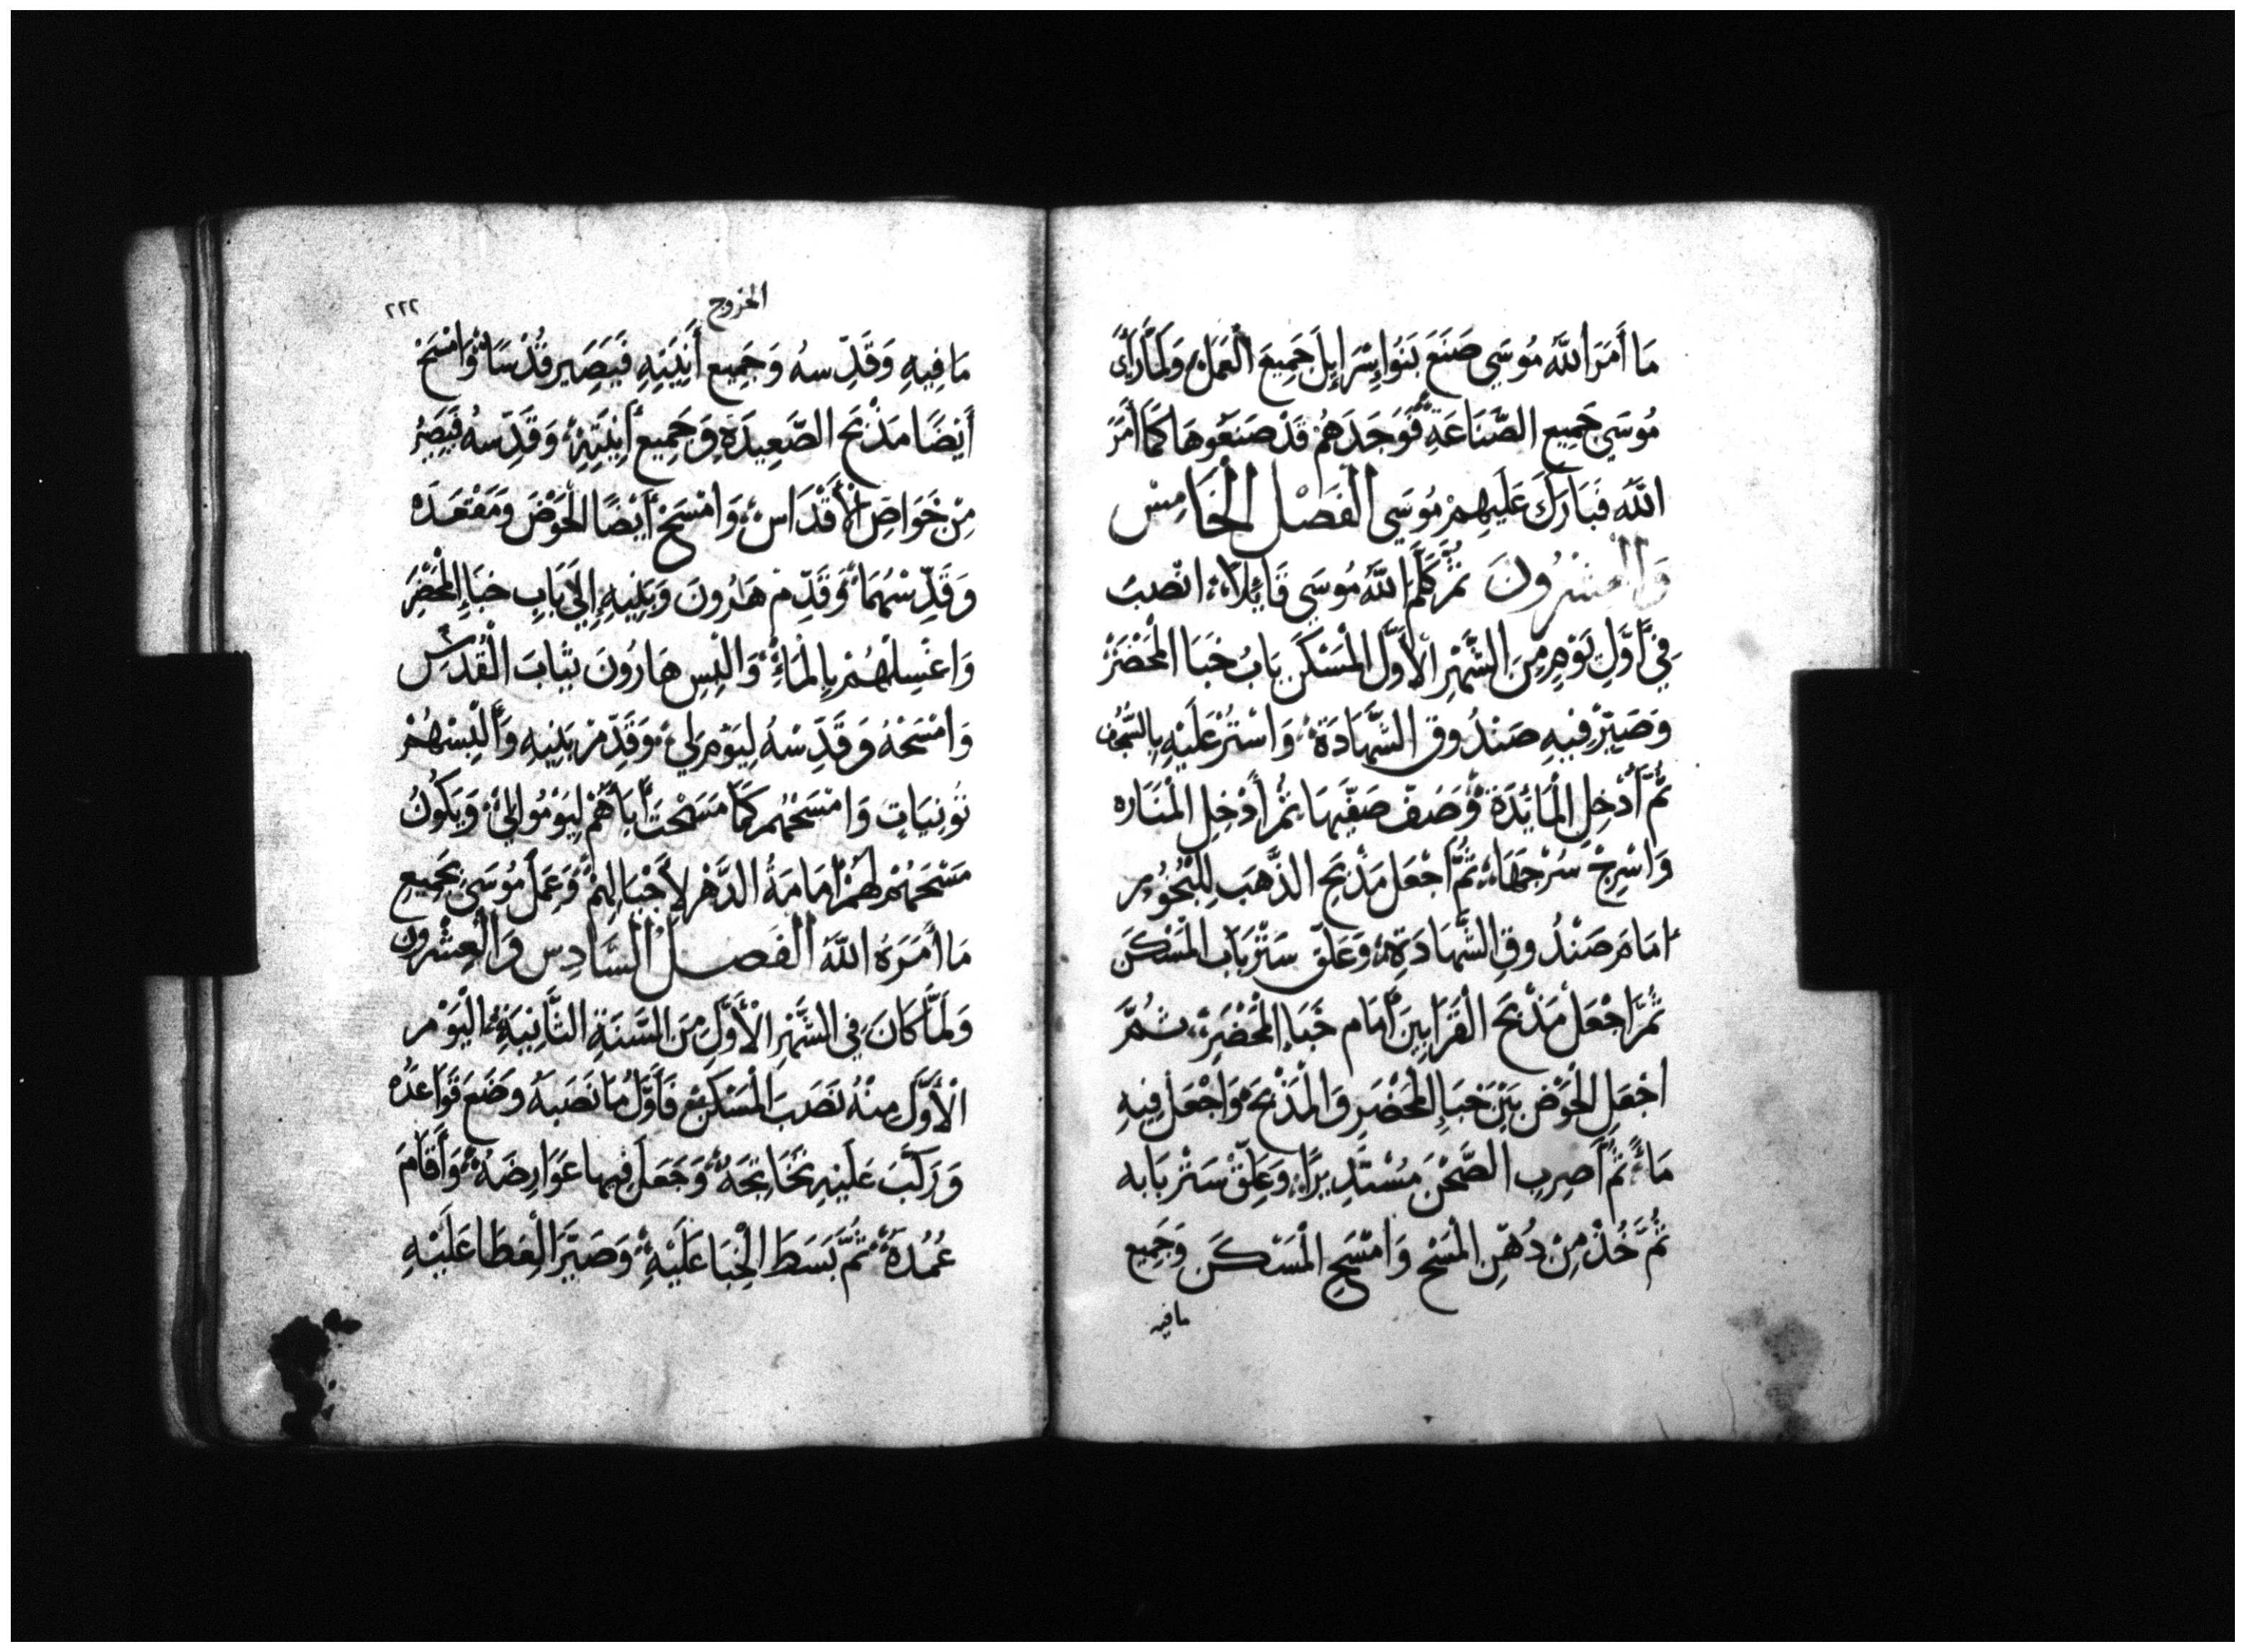 مَا أَمَرَ اللَّهُ مُوسَي صَنَعَ بَنُوا إِسْرَايِلَ جَمِيعَ الْعَمَلِ وَلَمَّا رَأَى
مُوسَي جَمِيعِ الصَّنَاعَةِ فَوَجَدَهُمْ قَدْ صَنَعُوهَا كَمَا أَمَرَ
اللَّهُ فَبَارَكَ عَلَيهِمْ مُوسَي الْفَصْل الْخَامِسْ
وَالعِشْرُونَ ثُمَّ كَلَّمَ اللَّهُ مُوسَي قَايِلًا انْصُبْ
فِي أَوَّلِ يَوْمٍ مِنَ الشَّهْرِ الْأَوَّلِ الْمَسْكَنَ بَابُ خَبَا الْمَحْضَرْ
وَصَيِّرْ فِيهِ صَنْدُوق الشَّهَادَة وَاسْتُرْ عَلَيْهِ بِالسَّجْف
ثُمَّ أَدْخِلِ الْمَايِدَة وَصَفّ صَفَّيهَا ثُمَّ أَدْخِلِ الْمَنَارَه
وَاسْرِجْ سُرْجَهَا ثُمَّ اجْعَل مَذْبَحِ الذَّهَبِ لِلْبُخُورِ
امَامَ صَنْدُوقِ الشَّهَادَةِ وَعَلِّق سَتْرَ بَابِ الْمَسْكَن
ثُمَّ اجْعَلْ مَذْبَحَ الْقَرَابِينَ أَمَام خَبَاءِ الْمَحْضَرِ ثُمَّ
اجْعَلِ الْحَوْض بَيْنَ خَبَاءِ الْمَحْضَرِ وَالْمَذْبَحِ وَاجْعَلْ فِيهِ
مَاءً ثُمَّ اَصِرِبِ الصَّحْنَ مُسْتَدِيرًا وَعَلِّقْ سَتْرَ بَابه
ثُمَّ خُذْ مِنْ دُهْنِ الْمَسْحِ وَامْسَحِ الْمَسْكَنَ وَجَمِيع
ما فيه
الخروج
٢٢٢
مَا فِيهِ وَقَدِّسهُ وَجَمِيع أَنِيَتِهِ فَيَصِير قُدْسًا وَامْسَحْ
أَيْضًا مَذْبَحَ الصَّعِيدَةِ وَجَمِيع أَنِيَتِهِ وَقَدِّسهُ فَيَصِيرُ
مِنْ خَوَاصِ الْأَقْدَاسِ وَامْسَحْ أَيْضًا الْحَوْضَ وَمَقْعَدَه
وَقَدِّسْهُمَا وَقَدِّم هَارُونَ وَبَنِيهِ إِلَي بَابِ خبَاءِ الْمَحْضَر
وَاغْسِلْهُمْ بِالْمَاءِ وَالْبِسِ هَارُونَ ثِيَابَ الْقُدْسِ
وَامْسَحْهُ وَقَدِّسْهُ لِيَوْمَ لِي وَقَدِّمْ بَنِيهِ وَأَلْبِسْهُمْ
تُونِيَاتٍ وَامْسَحْهُمْ كَمَا مَسَحْتَ أَبَاهُمْ لِيَوْمُوا لِي وَيَكُونُ
مَسْحَهُمْ لَهُمْ أمَامَةُ الدَّهْرِ لِأَجْيَالِهِمْ وَعَمَلَ مُوسَي بِجَمِيعِ
مَا أَمَرَهُ اللَّهُ الْفَصْلُ السَّادِس وَالْعِشْرُون
وَلَمَّا كَانَ فِي الشَّهْرِ الْأَوَّلِ مِنَ السَّنَةِ الثَّانِيَةِ الْيَوْمَ
الْأَوَّلَ مِنْهُ نَصَبَ الْمَسْكَن فَأَوَّلُ مَا نَصَبَهُ وَضَعَ قَوَاعدَه
وَرَكَّبَ عَلَيْهِ تَخَاتِحَهُ وَجَعَلَ فِيها عَوَارِضَهُ وَأَقَامَ
عُمُدَهُ ثُمَّ بَسَطَ الْخِبَا عَلَيْهِ وَصَيَّرَ الْغِطَا عَلَيْهِ